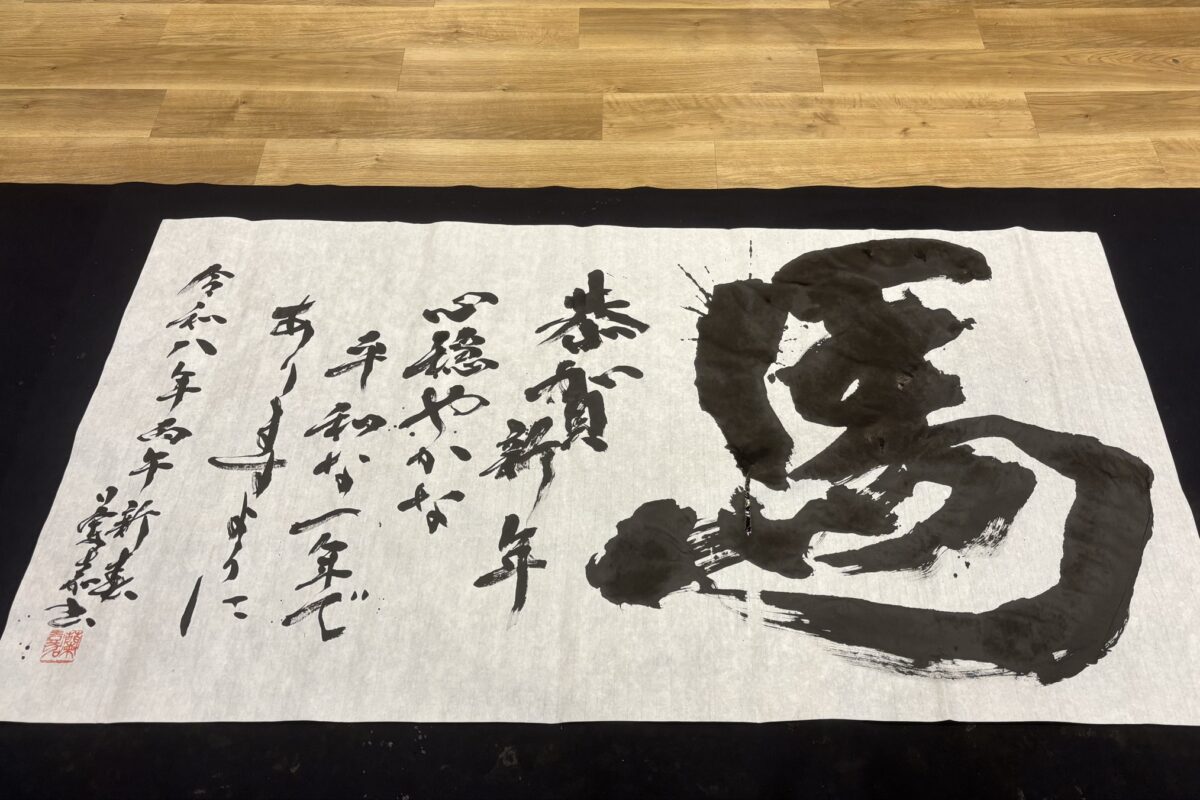 馬
恭賀新年
心穏やかな
平和な一年で
ありますように
令和八年丙午
新春